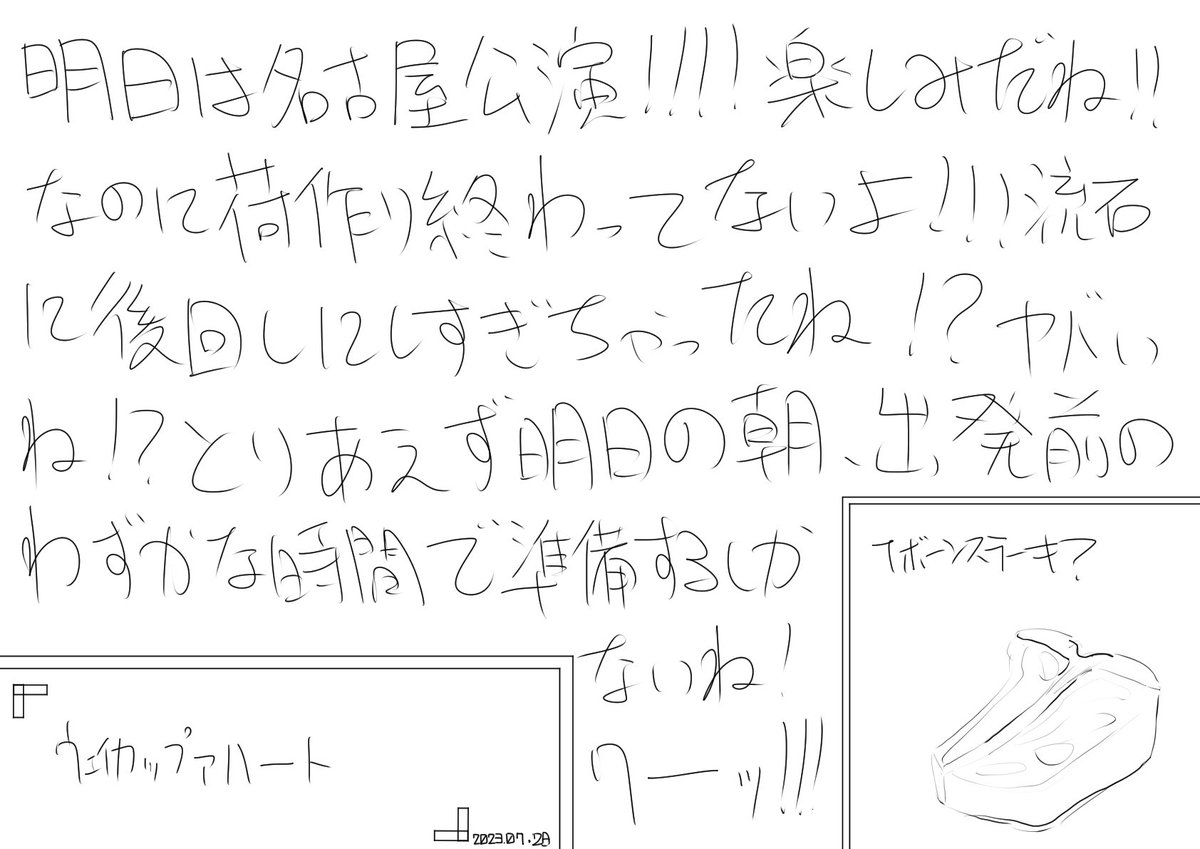 明日は名古屋公演!!!! 楽しみだね!!
なのに荷作り終わってないよ!!! 流石
に後回しにしすぎちゃったね!? ヤバい
ね!? とりあえず明日の朝、出発前の
わずかな時間で準備するしか
ないね!
ワーッ!!!
Tボーンステーキ?
ウェイカップアハート
2023.07.28